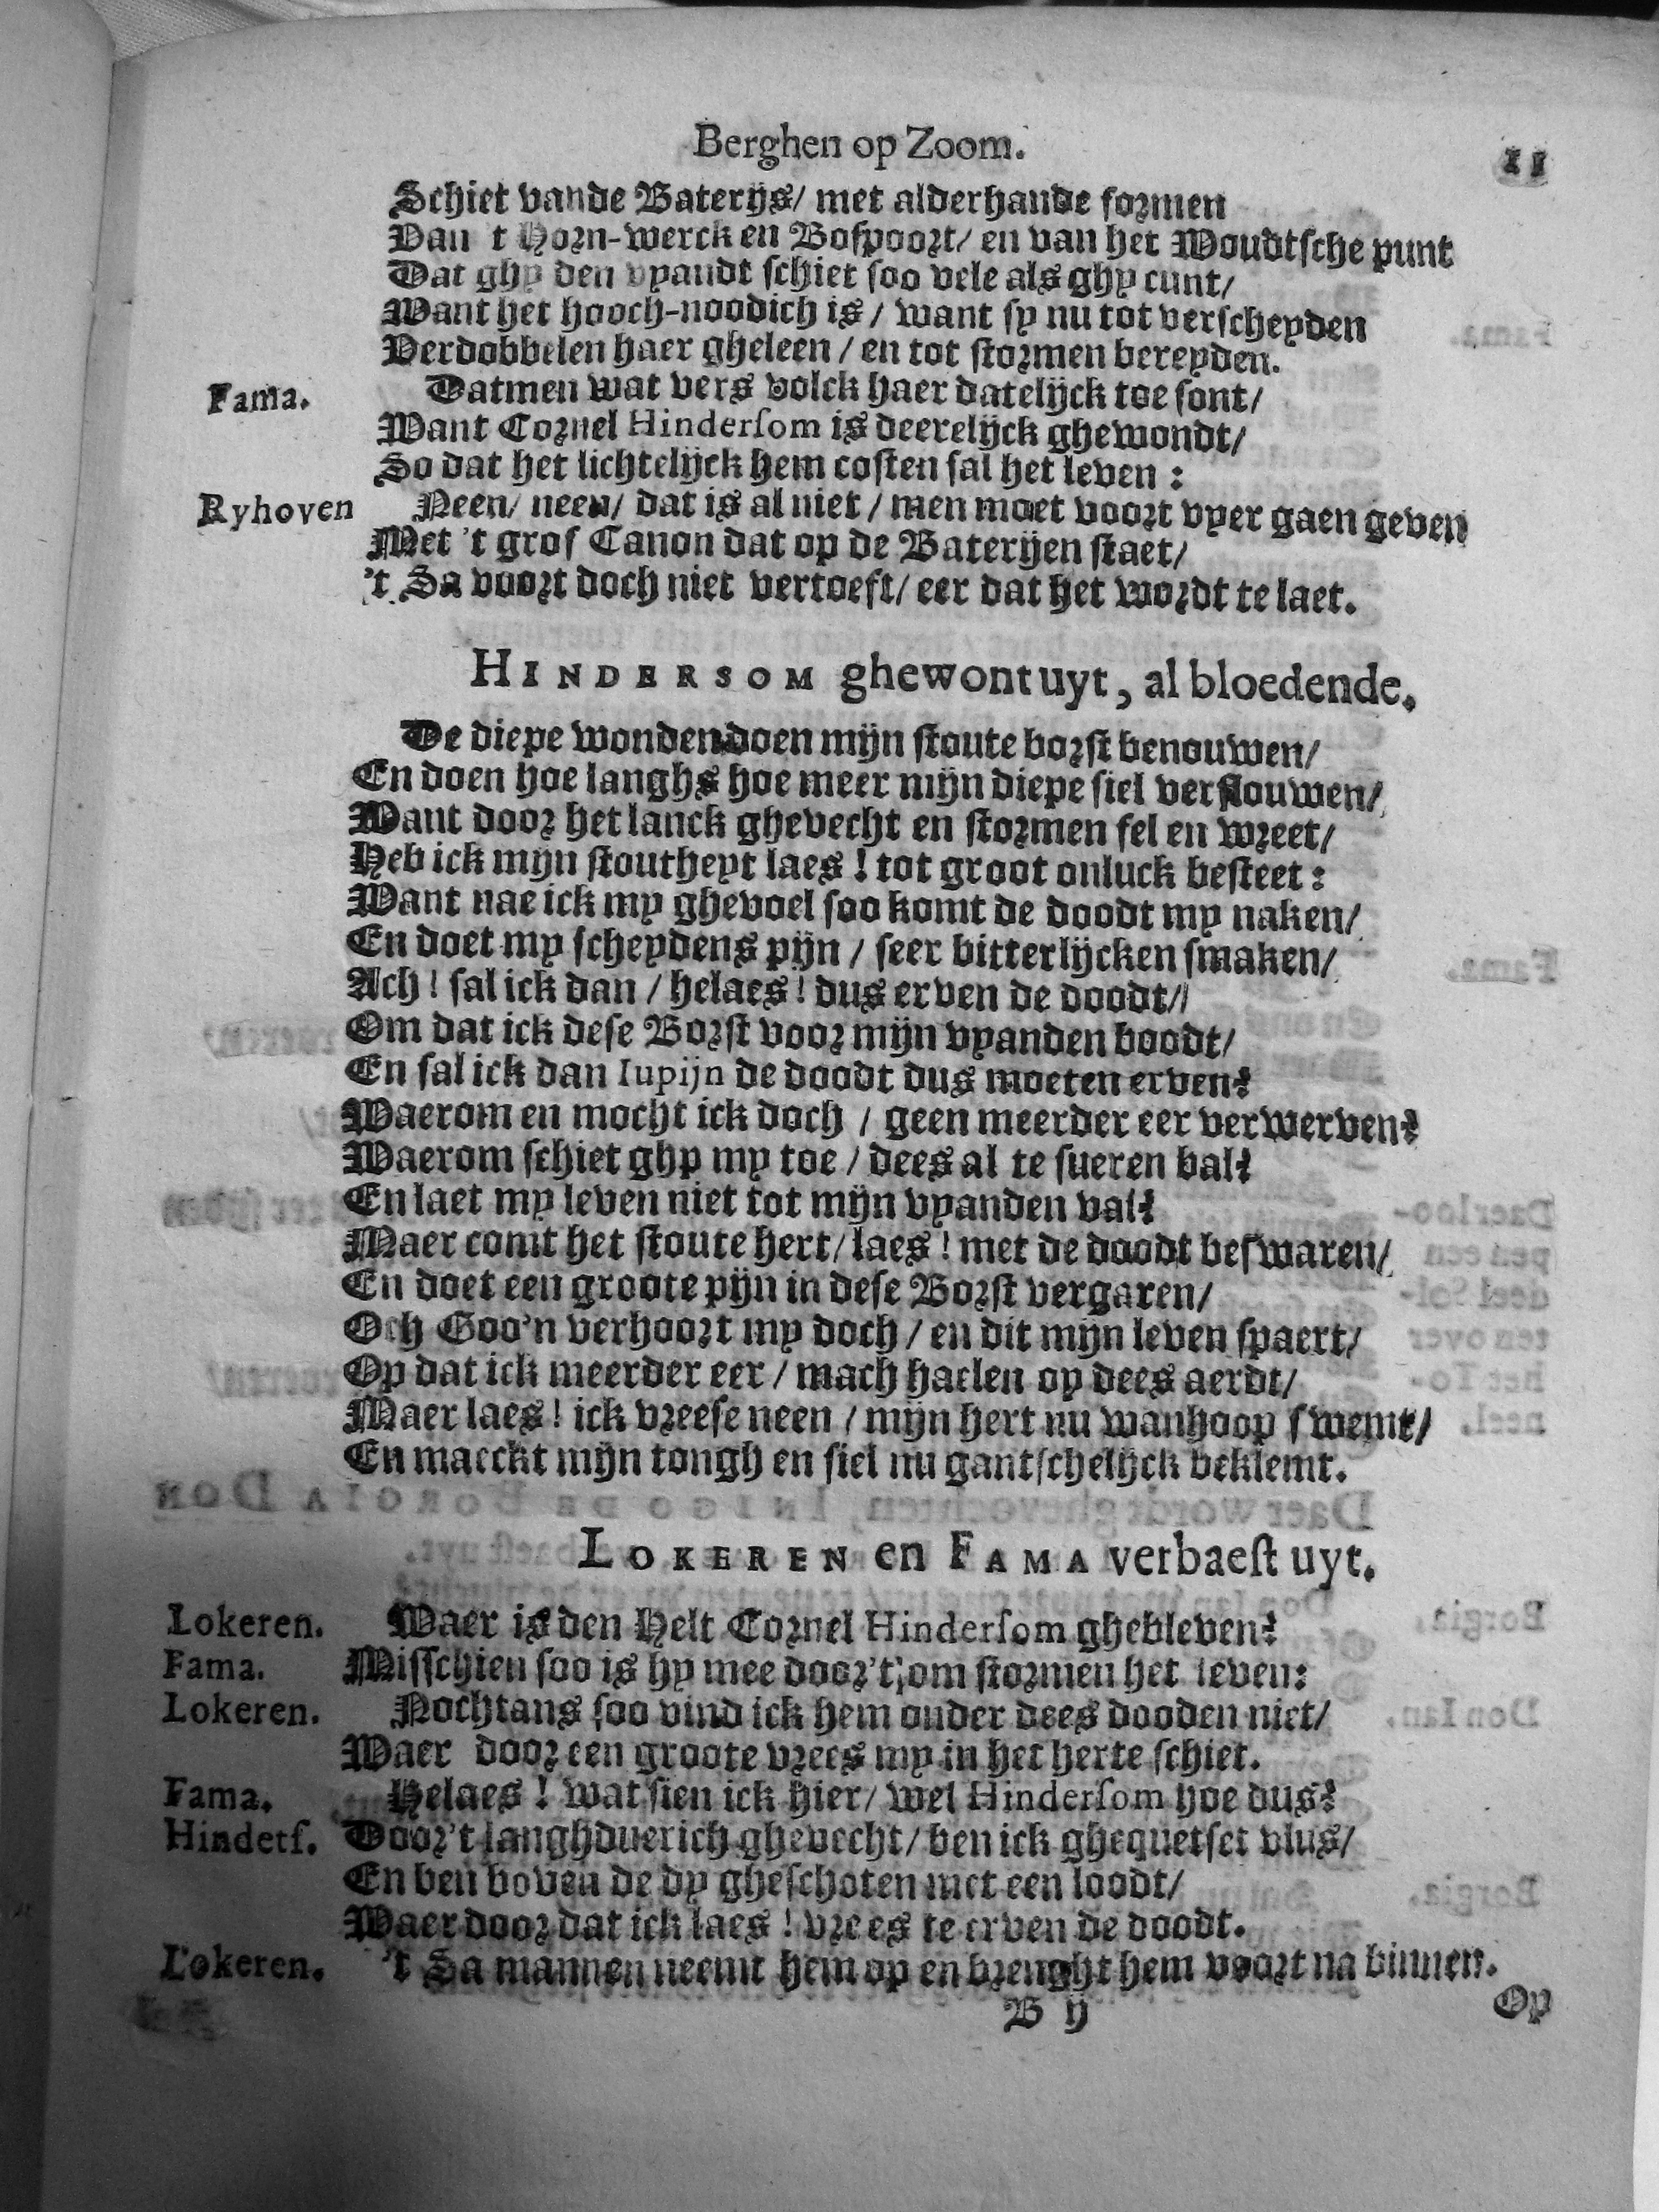 Berghen op Zoom. 11
Schiet vande Baterijs/ met alderhande formen
Van 't Horn-werck en Bospoort/ en van het Woudtsche punt
Dat ghy den vyandt schiet soo vele als ghy cunt/
Want het hooch-noodich is / want sy nu tot verscheyden
Verdobbelen haer gheleen / en tot stormen bereyden.
Fama. Datmen wat vers volck haer datelijck toe sont/
Want Cornel Hindersom is deerelijck ghewondt/
So dat het lichtelijck hem costen sal het leven :
Ryhoven Neen/ neen/ dat is al niet / men moet voort vyer gaen geven
Met 't gros Canon dat op de Baterijen staet/
't Sa voort doch niet vertoeft/ eer dat het wordt te laet.
HINDERSOM ghewont uyt, al bloedende.
De diepe wonden doen mijn stoute borst benouwen/
En doen hoe langhs hoe meer mijn diepe siel verflouwen/
Want door het lanck ghevecht en stormen fel en wreet/
Heb ick mijn stoutheyt laes ! tot groot onluck besteet :
Want nae ick my ghevoel soo komt de doodt my naken/
En doet my scheydens pijn / seer bitterlijcken smaken/
Ach ! sal ick dan / helaes ! dus erven de doodt//
Om dat ick dese Borst voor mijn vyanden boodt/
En sal ick dan Iupijn de doodt dus moeten erven?
Waerom en mocht ick doch / geen meerder eer verwerven?
Waerom schiet ghy my toe / dees al te sueren bal?
En laet my leven niet tot mijn vyanden val?
Maer comt het stoute hert/ laes ! met de doodt beswaren/
En doet een groote pijn in dese Borst vergaren/
Och Goo'n verhoort my doch / en dit mijn leven spaert/
Op dat ick meerder eer / mach haelen op dees aerdt/
Maer laes ! ick vreese neen / mijn hert nu wanhoop swemt/
En maeckt mijn tongh en siel nu gantschelijck beklemt.
LOKEREN en FAMA verbaest uyt.
Lokeren. Waer is den Helt Cornel Hindersom ghebleven?
Fama. Misschien soo is hy mee door 't om stormen het leven:
Lokeren. Nochtans soo vind ick hem onder dees dooden niet/
Waer door een groote vrees my in het herte schiet.
Fama. Helaes ! wat sien ick hier/ wel Hindersom hoe dus?
Hinders. Door 't langhduerich ghevecht/ ben ick ghequetset vlus/
En ben boven de dy gheschoten met een loodt/
Waer door dat ick laes ! vrees te erven de doodt.
Lokeren. 't Sa mannen neemt hem op en brenght hem voort na binnen.
B ij Op